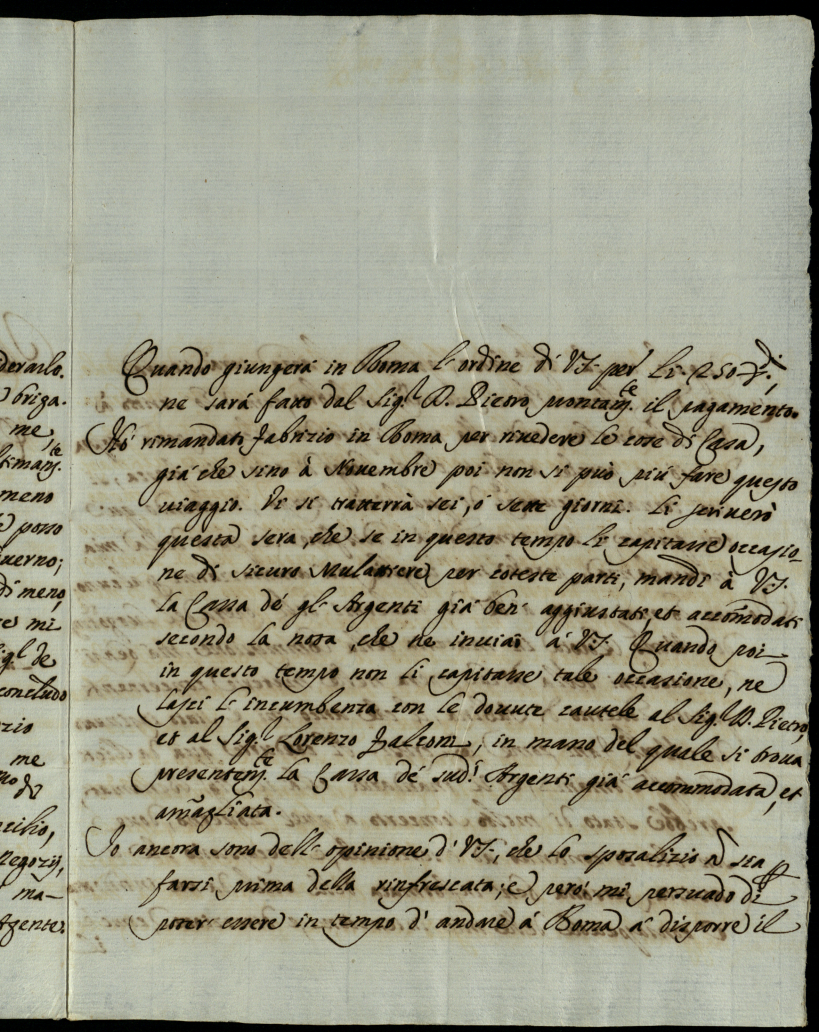 derarlo.
briga.
me,
timam.te
meno
e posso
verno;
di meno,
re mi
Sig.l de
concludo
rzio
me
mo de
ncilio,
Negozij,
ma-
Argente.
Quando giungerá in Roma l'ordine di VS. per li 250 di,
ne sará fatto dal Sig.l D. Pietro prontam.te il pagamento.
Hó rimandati fabrizio in Roma per rivedere le cose di Casa,
giá che sino à Novembre poi non si può piú fare questo
viaggio. Vi si tratterrà sei, ó sette giorni. Li scriverò
questa sera, che se in questo tempo li capitasse occasio-
ne di sicuro Mulattiere per coteste parti, mandi à VS.
la Cassa dé gl' Argenti giá ben' aggiustati, et accomodati
secondo la nota, che ne inviai á VS. Quando poi
in questo tempo non li capitasse tale occasione, ne
lasci l'incumbenza con le dovute cautele al Sig.l D. Pietro,
et al Sig.l Lorenzo Falconi, in mano del quale si trova
presentem.te la Cassa dé sud.i Argenti giá accommodata, et
amagliata.
Io ancora sono dell'opinione d' VS., che lo sposalizio ñ sia p
farsi prima della rinfrescata; e peró mi persuado di
poter essere in tempo d' andare á Roma á disporre il